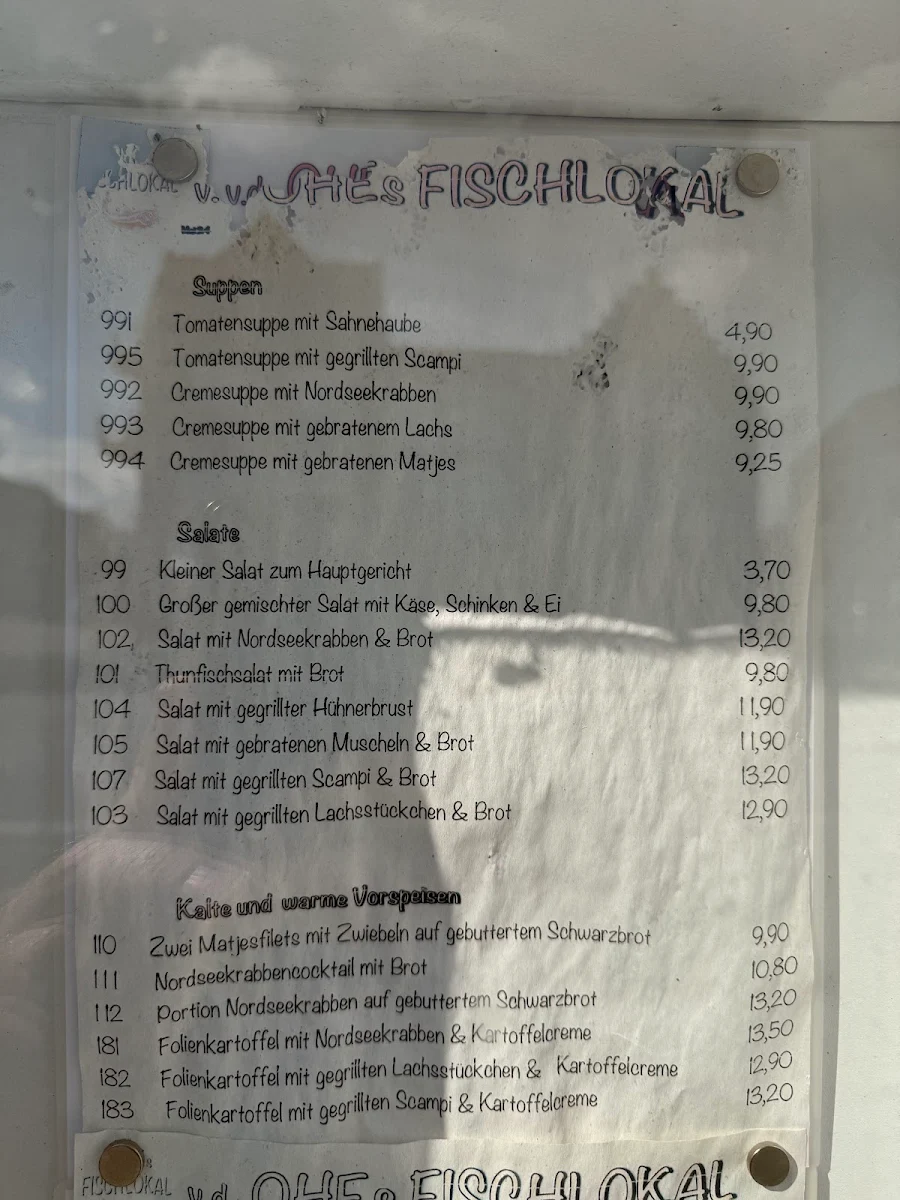 v.v.d OHEs FISCHLOKAL
Suppen
991 Tomatensuppe mit Sahnehaube 4,90
995 Tomatensuppe mit gegrillten Scampi 9,90
992 Cremesuppe mit Nordseekrabben 9,90
993 Cremesuppe mit gebratenem Lachs 9,80
994 Cremesuppe mit gebratenen Matjes 9,25
Salate
99 Kleiner Salat zum Hauptgericht 3,70
100 Großer gemischter Salat mit Käse, Schinken & Ei 9,80
102 Salat mit Nordseekrabben & Brot 13,20
101 Thunfischsalat mit Brot 9,80
104 Salat mit gegrillter Hühnerbrust 11,90
105 Salat mit gebratenen Muscheln & Brot 11,90
107 Salat mit gegrillten Scampi & Brot 13,20
103 Salat mit gegrillten Lachsstückchen & Brot 12,90
Kalte und warme Vorspeisen
110 Zwei Matjesfilets mit Zwiebeln auf gebuttertem Schwarzbrot 9,90
111 Nordseekrabbencocktail mit Brot 10,80
112 Portion Nordseekrabben auf gebuttertem Schwarzbrot 13,20
181 Folienkartoffel mit Nordseekrabben & Kartoffelcreme 13,50
182 Folienkartoffel mit gegrillten Lachsstückchen & Kartoffelcreme 12,90
183 Folienkartoffel mit gegrillten Scampi & Kartoffelcreme 13,20
FISCHLOKAL
v.d. OHEs FISCHLOKAL